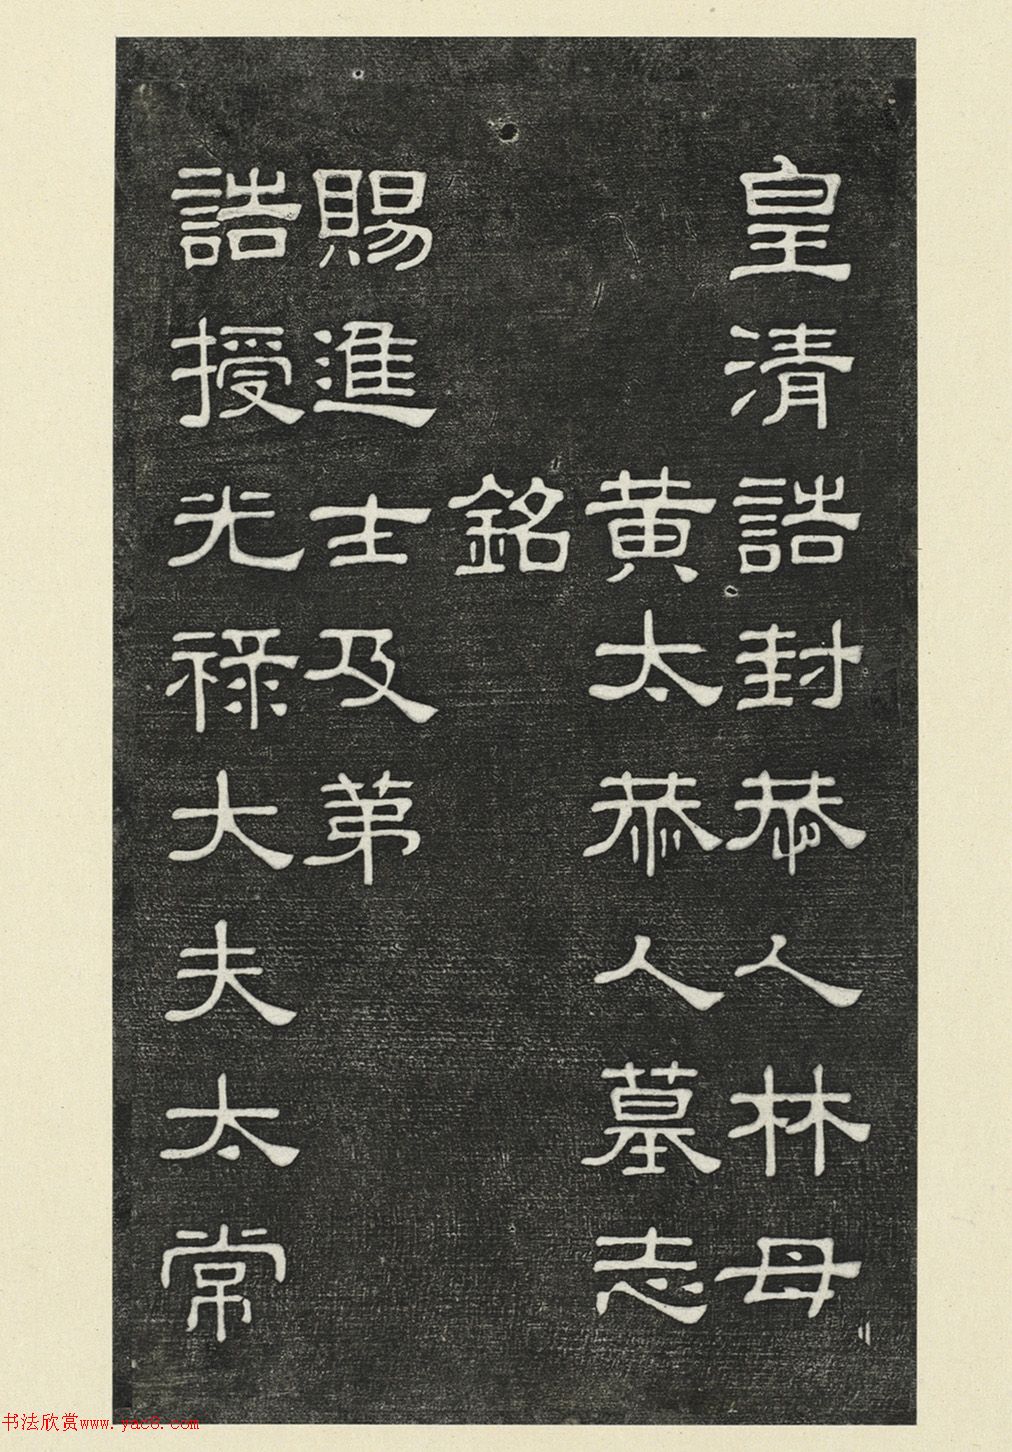 皇清誥封恭人林母
黃太恭人墓志
銘
賜進士及弟
誥授光祿大夫太常
书法欣赏www.yac8.com